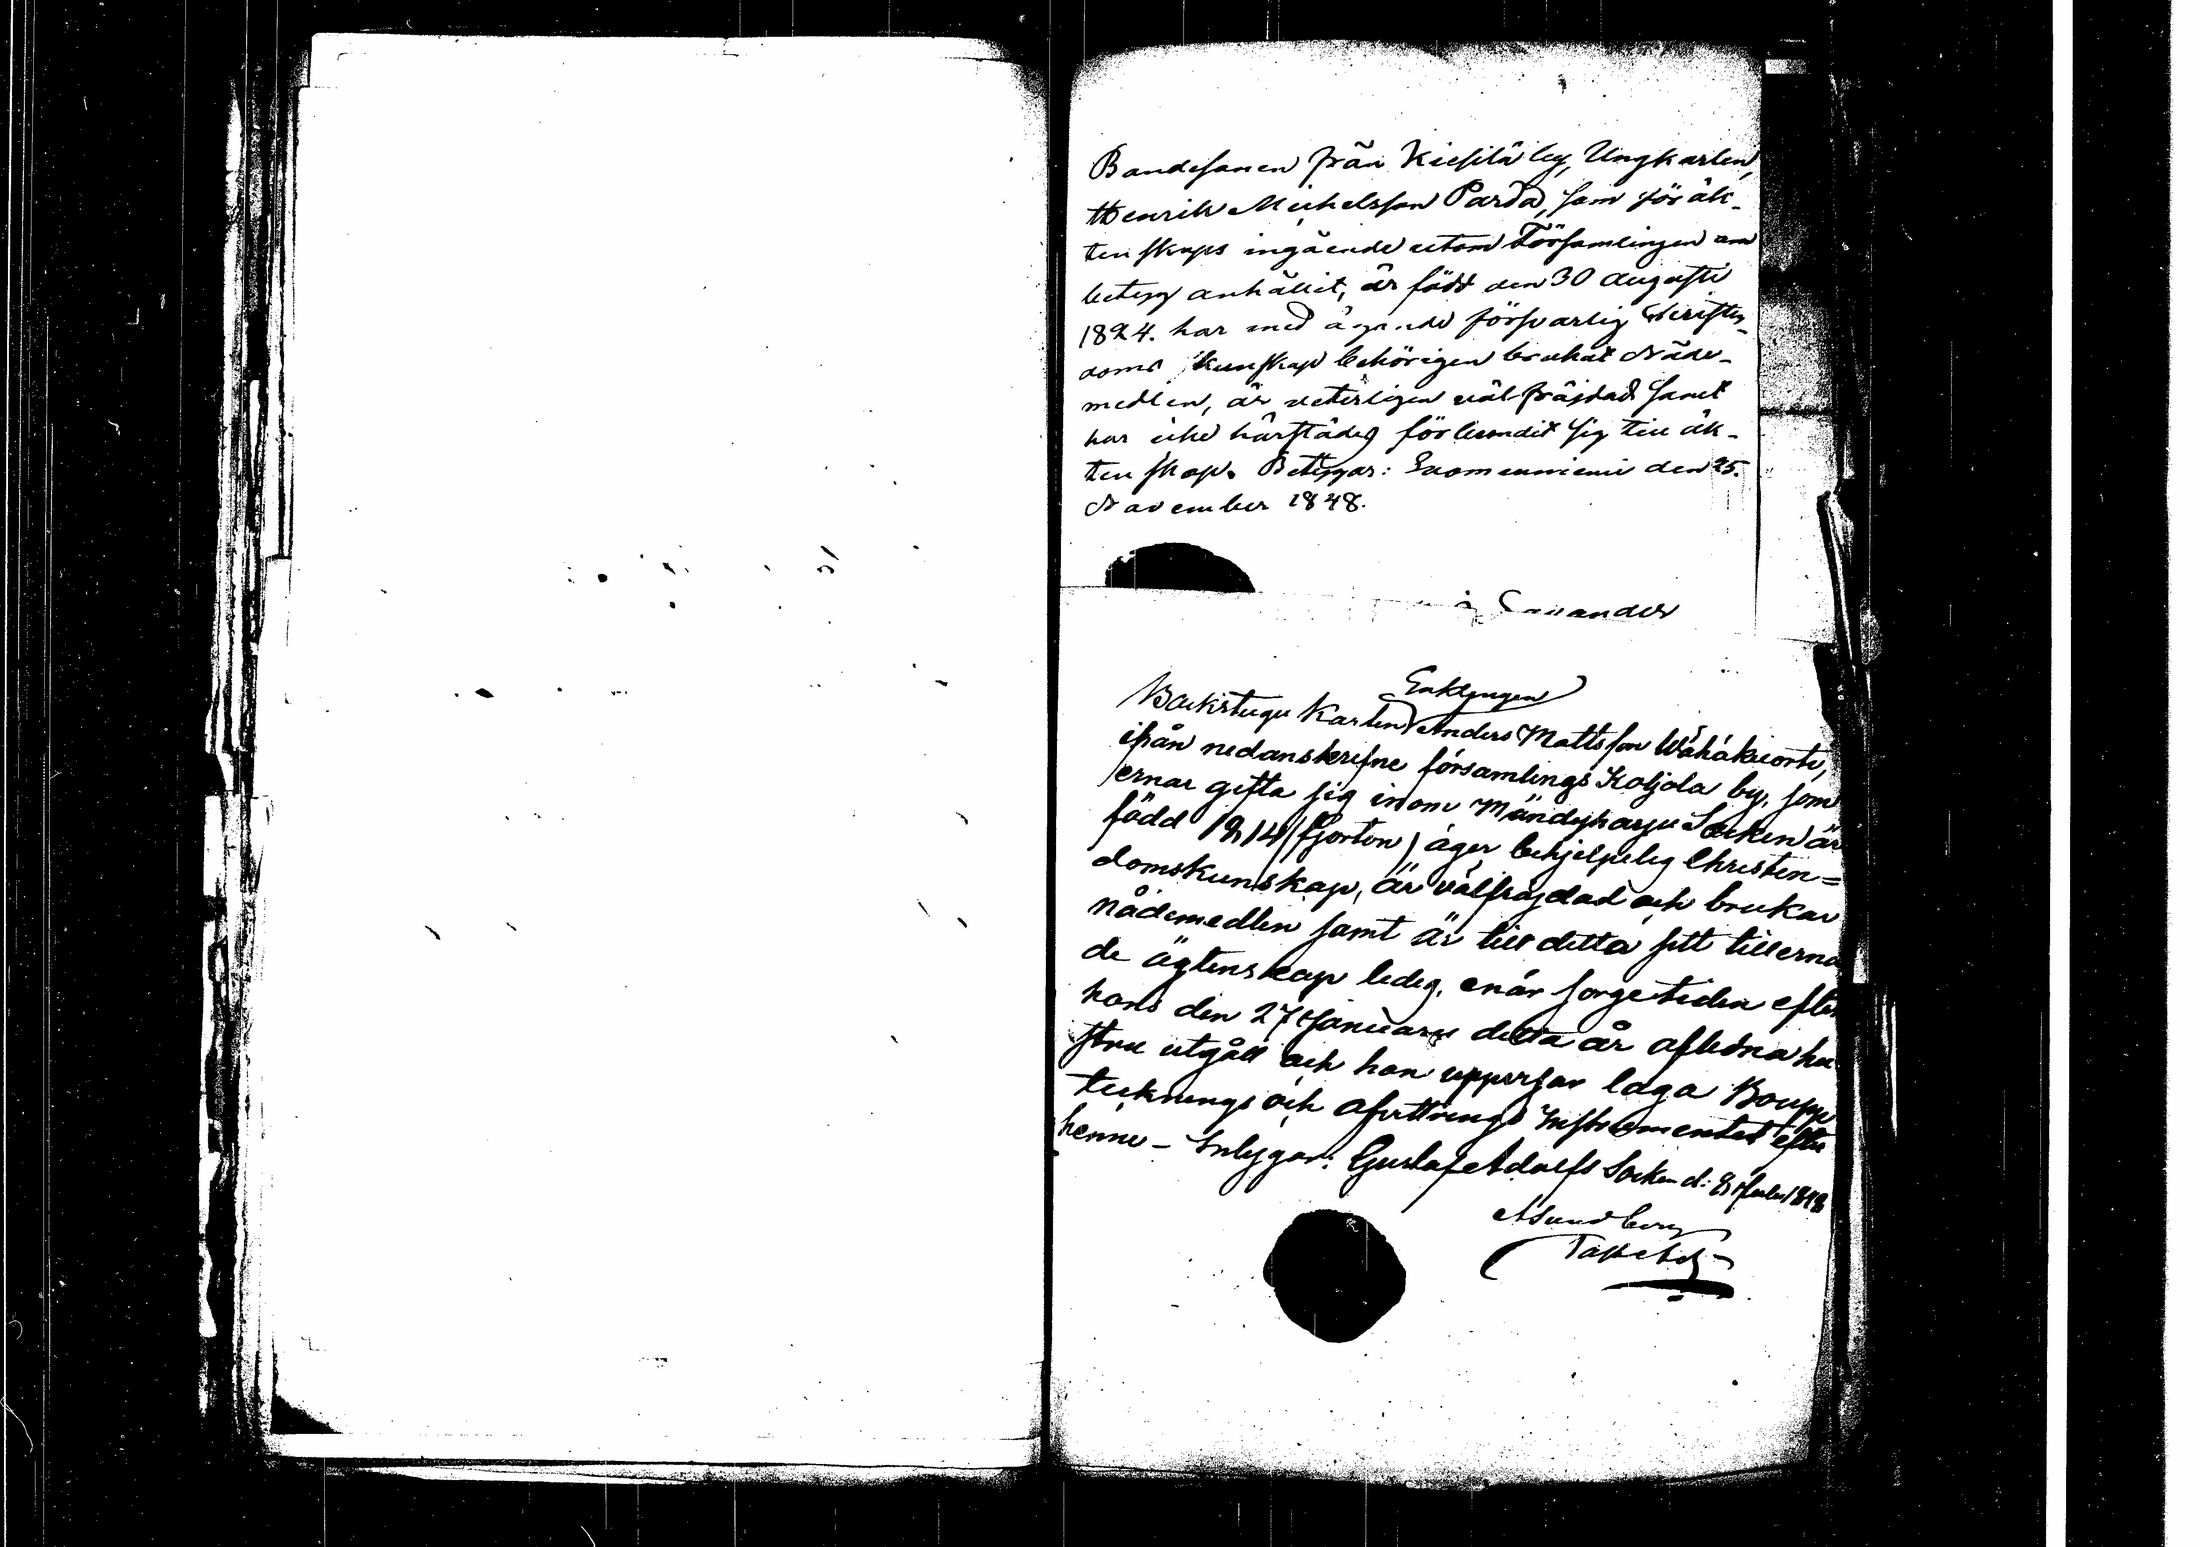 Bondesonen från Kiesilä by, Ungkarlen,
Henrik Michelsson Parda, som för äk-
tenskaps ingående utom Församlingen om
betyg anhållit, är född den 30 Augusti
1824. har med ägande försvarlig Christen-
doms kunskap behörigen brukat Nåde-
medlen, är veterligen välfräjdad samt
har icke härstädes förbundit sig till äk-
tenskap. Betygar: Suomenniemi den 25.
November 1848.
Enklingen
Backstugu Karlen Anders Mattsson Wähäkuorti,
ifrån nedanskrefne församlings Koljola by, som
ernar gifta sig inom Mändyharju Socken är
född 1814 (fjorton) äger behjelpelig Christen=
domskunskap, är välfrägdad och brukar
nådemedlen samt är till detta sitt tillerna
de ägtenskap ledig, enär sorgetiden efter
hans den 27 Januarii detta år aflidna hu
stru utgått och han uppvisar laga Boupp
tecknings och afvittrings Instrumentet efter
henne – Intygar: Gustaf Adolfs Socken d: 1848
A Sundberg